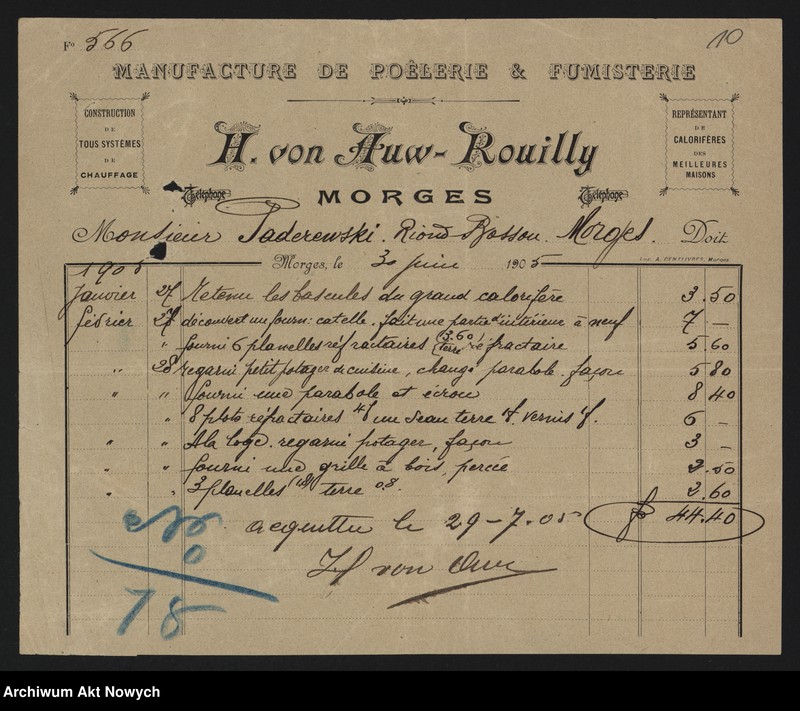 Fº 566
10
MANUFACTURE DE POÊLERIE & FUMISTERIE
CONSTRUCTION
DE
TOUS SYSTÈMES
DE
CHAUFFAGE
REPRÉSENTANT
DE
CALORIFÈRES
DES
MEILLEURES
MAISONS
H. von Auw-Rouilly
Téléphone
MORGES
Téléphone
Monsieur Paderewski. Riond Bosson. Morges. Doit
Morges, le 30 juin 1905
1905
Janvier 27 Retenu les bascules du grand calorifère 3.50
février 27 découvert un fourn: catelle. fait une partie d'intérieur à neuf 7 —
" fourni 6 planelles réfractaires (3.60) terre réfractaire 5 60
" 28 regarni petit potager de cuisine, changé parabole. façon 5 80
" " fourni une parabole et écrou 8 40
" 8 plots réfractaires un seau terre vernis 6 —
" " A la loge. regarni potager, façon 3 —
" " fourni une grille à bois, percée 2.50
" " 3 planelles terre 0,8. 2.60
acquitté le 29-7.05 fr 44.40
H von Auw
No
78
Archiwum Akt Nowych